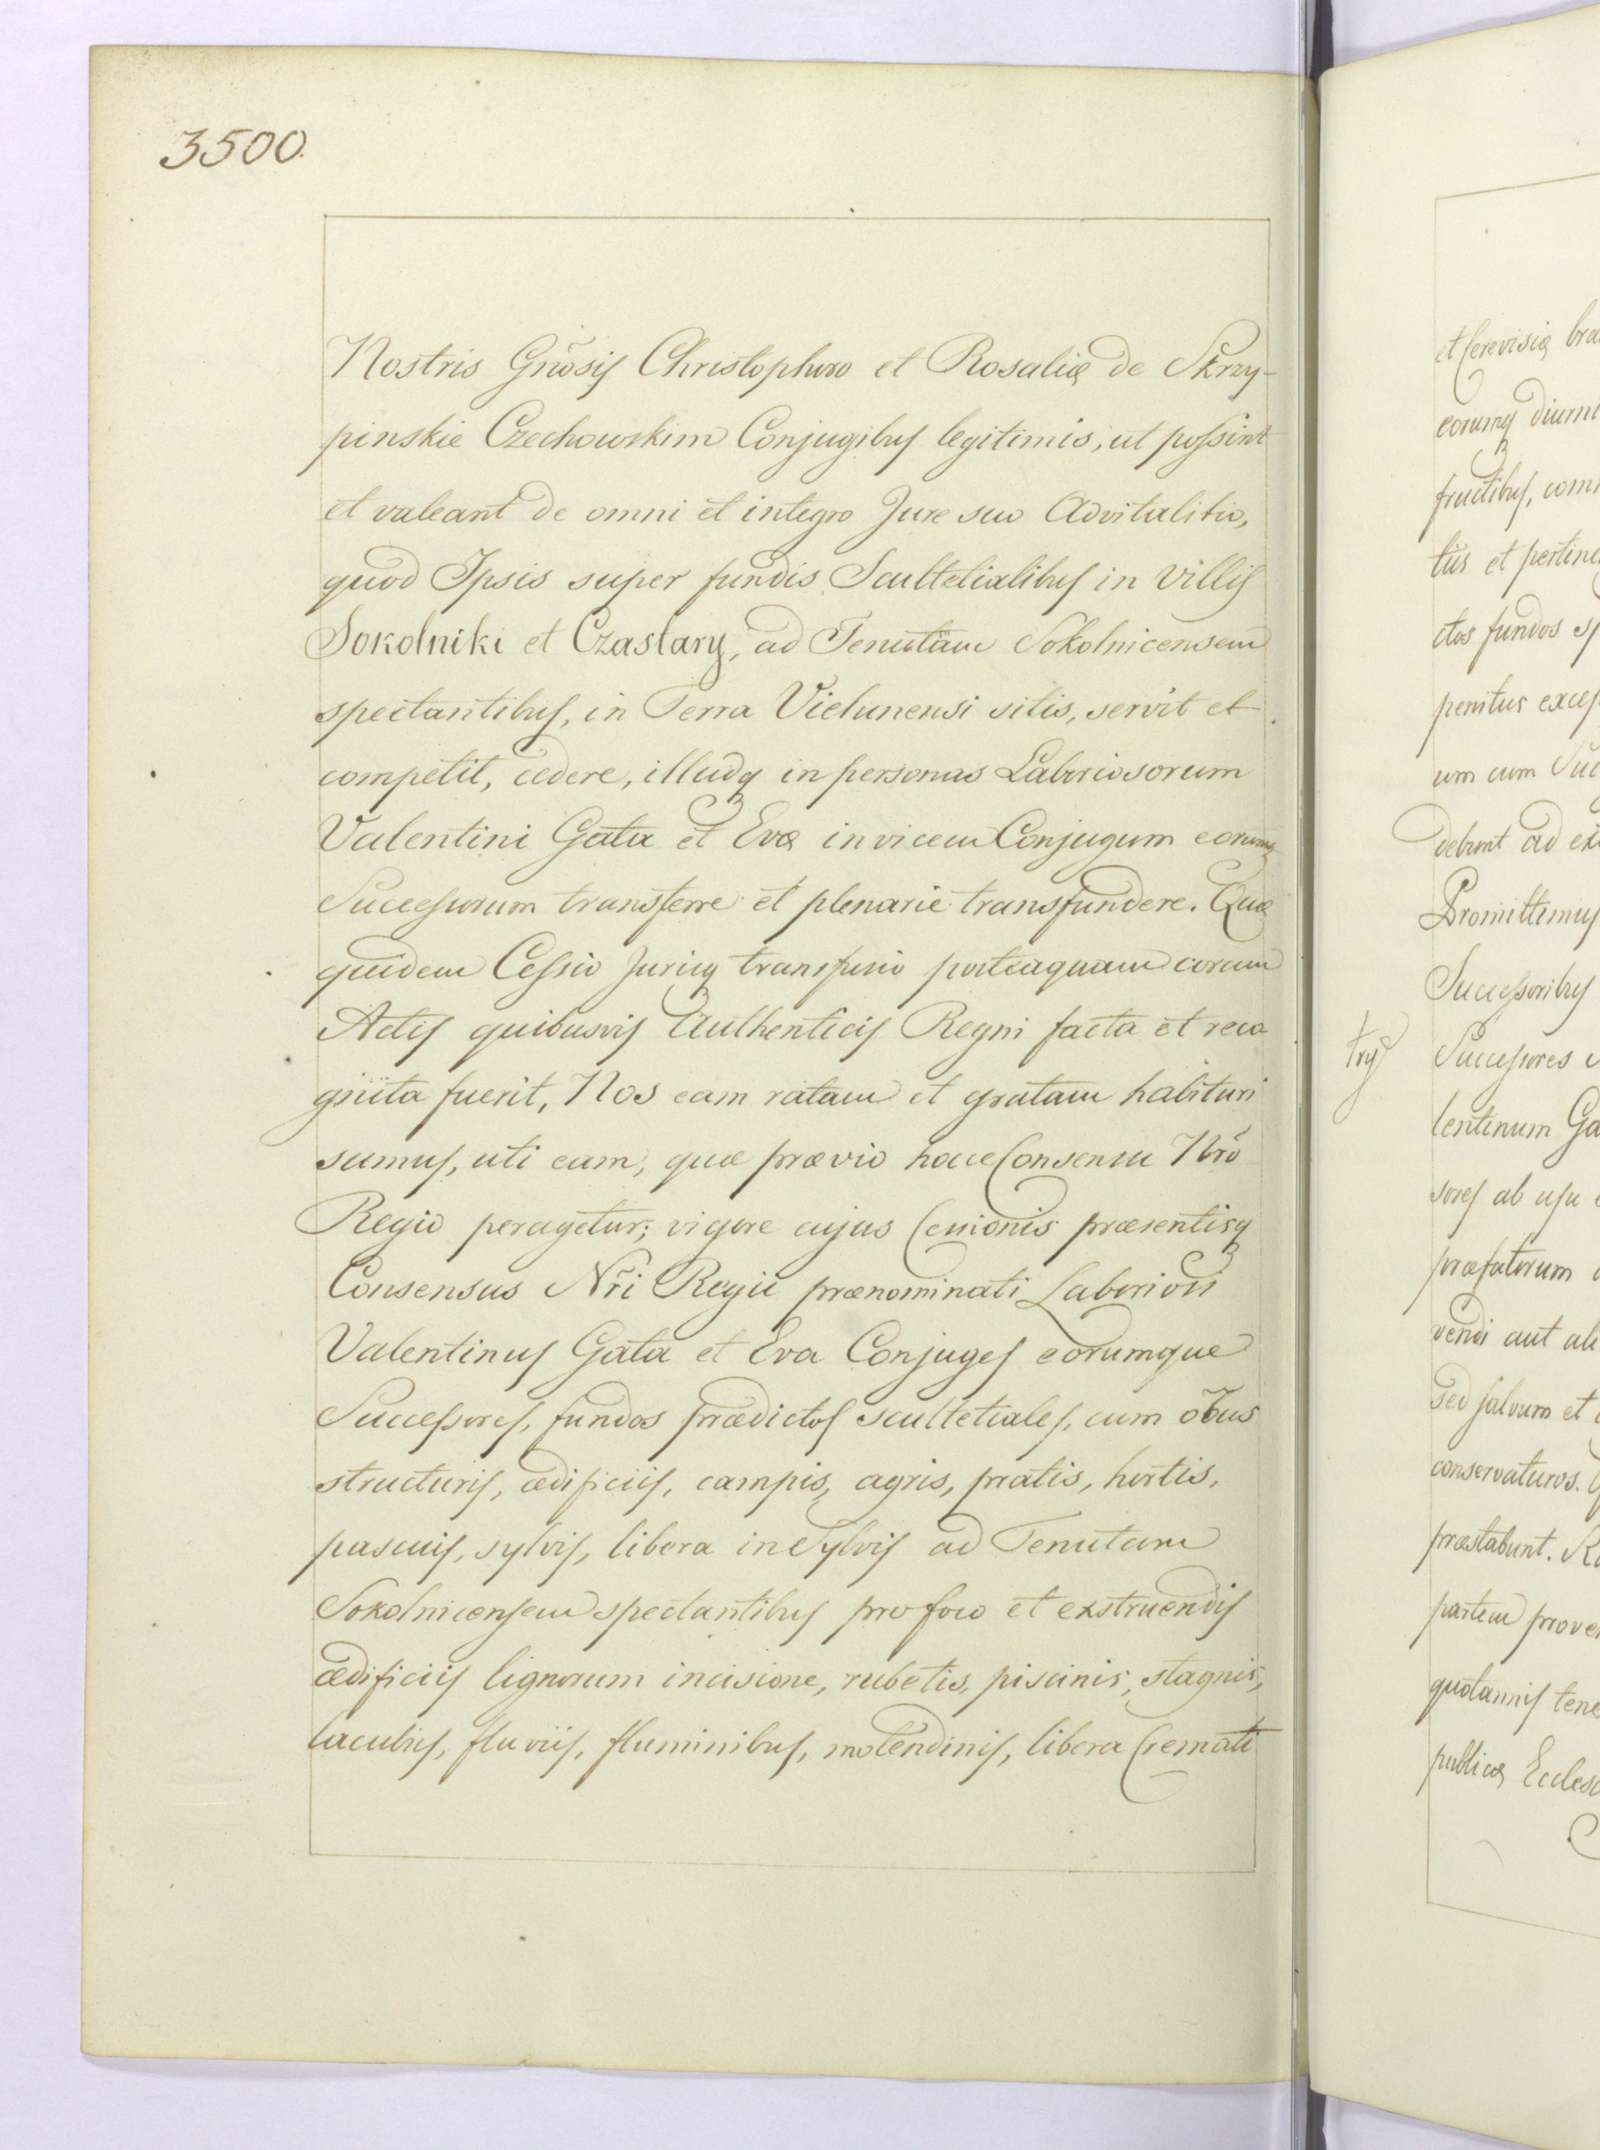 3500.
Nostris Gñosis Christophoro et Rosaliæ de Skrzy-
pinskie Czechowskim Conjugibus legitimis, ut possint
et valeant de omni et integro Jure suo Advitalitio,
quod Ipsis super fundis Scultetialibus in Villis
Sokolniki et Czastary, ad Tenutam Sokolnicensem
spectantibus, in Terra Vielunensi sitis, servit et
competit, cedere, illudq in personas Laboriosorum
Valentini Gata et Evæ invicem Conjugum eorumq
Successorum transferre et plenarie transfundere. Quæ
quidem Cessio Jurisq transfusio posteaquam coram
Actis quibusvis Authenticis Regni facta et reco
gnita fuerit, Nos eam ratam et gratam habituri
sumus, uti eam, quæ prævio hocce Consensu Nrõ
Regio peragetur; vigore cujus Cessionis præsentisq
Consensus Nr̃i Regii prænominati Laboriosi
Valentinus Gata et Eva Conjuges eorumque
Successores, fundos prædictos scultetiales, cum õbus
structuris, ædificiis, campis, agris, pratis, hortis,
pascuis, sylvis, libera in Sylvis ad Tenutam
Sokolnicensem spectantibus pro foco et exstruendis
ædificiis lignorum incisione, rubetis, piscinis, stagnis,
lacubus, fluviis, fluminibus, molendinis, libera Cremati
et Cerevisiæ
eorumq
fructibus,
tiis et
ctos fundos
penitus
um cum
debunt ad
Promittimus
Successoribus
try
Successores
lentinum
sores ab usu
præfatorum
vendi aut
sed salvum et
conservaturos.
præstabunt.
partem
quotannis
publicæ